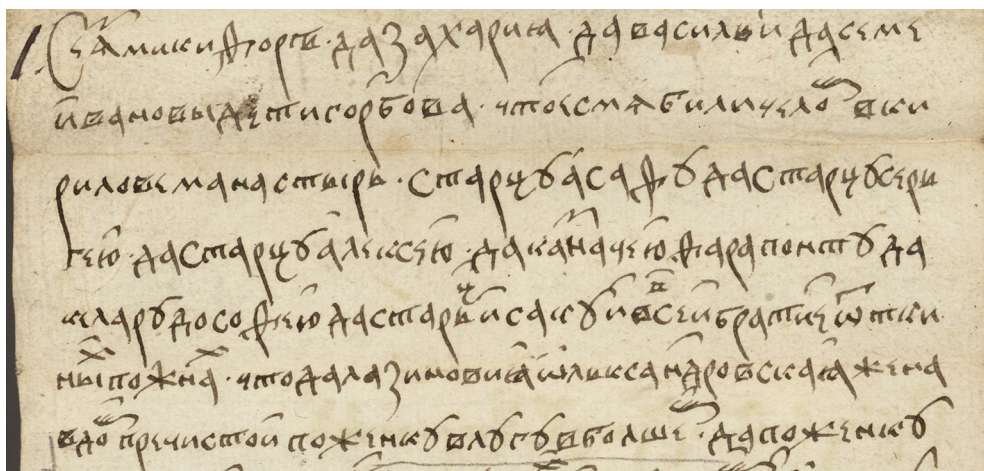 Се ꙗ микифоръ · да захариꙗ · да василеи да семе
ивановы дѣти горбова · что есмꙗ били челоⷨ в ки
рилове манастырь · старцꙋ асафꙋ да старцꙋ серь
гею · да старцꙋ алексею · да казначею фарапонтꙋ да
кларꙋ дософею да старцꙋ исакꙋ и всеи братие ѿ тки
ныⷯ пожнⷯ · что дала зиновиꙗ ѡлександровскаꙗ жена
в доⷨ пречистои поженкꙋ в лꙋгꙋ в болшеⷨ · да поженкꙋ